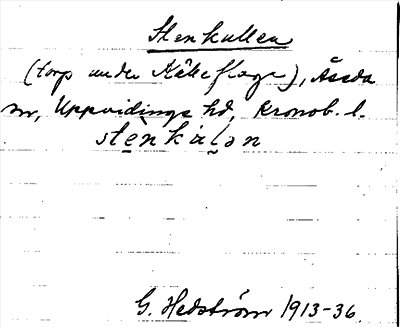 Stenkullen
(torp under Källeflaga), Åseda
sn, Uppvidinge hd, Kronob. l.
stènkàlən
G. Hedström 1913-36.